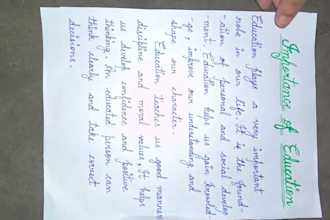 Importance of Education
Education plays a very important
role in our life. It is the found-
-ation of personal and social develop
-ment. Education helps us gain knowled-
-ge, improve our understanding and
shape our character.
Education teaches us good manners
discipline and moral values. It helps
us develop confidence and positive
thinking. An educated person can
think clearly and take correct
decisions.